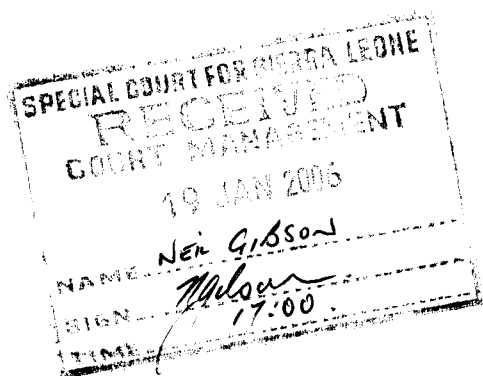 SPECIAL COURT FOR SIERRA LEONE
RECEIVED
COURT MANAGEMENT
19 JAN 2006
NAME NEIL GIBSON
SIGN NGibson
TIME 17:00